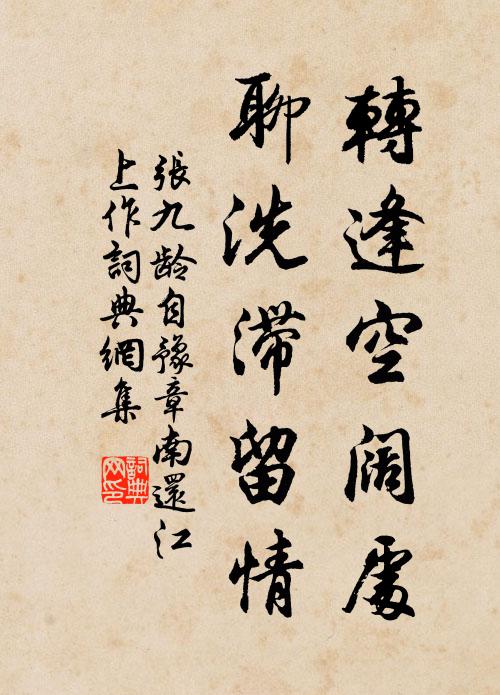 轉逢空阔處
聊洗滞留情
張九龄自豫章南還江
上作詞典網集
詞典
网印